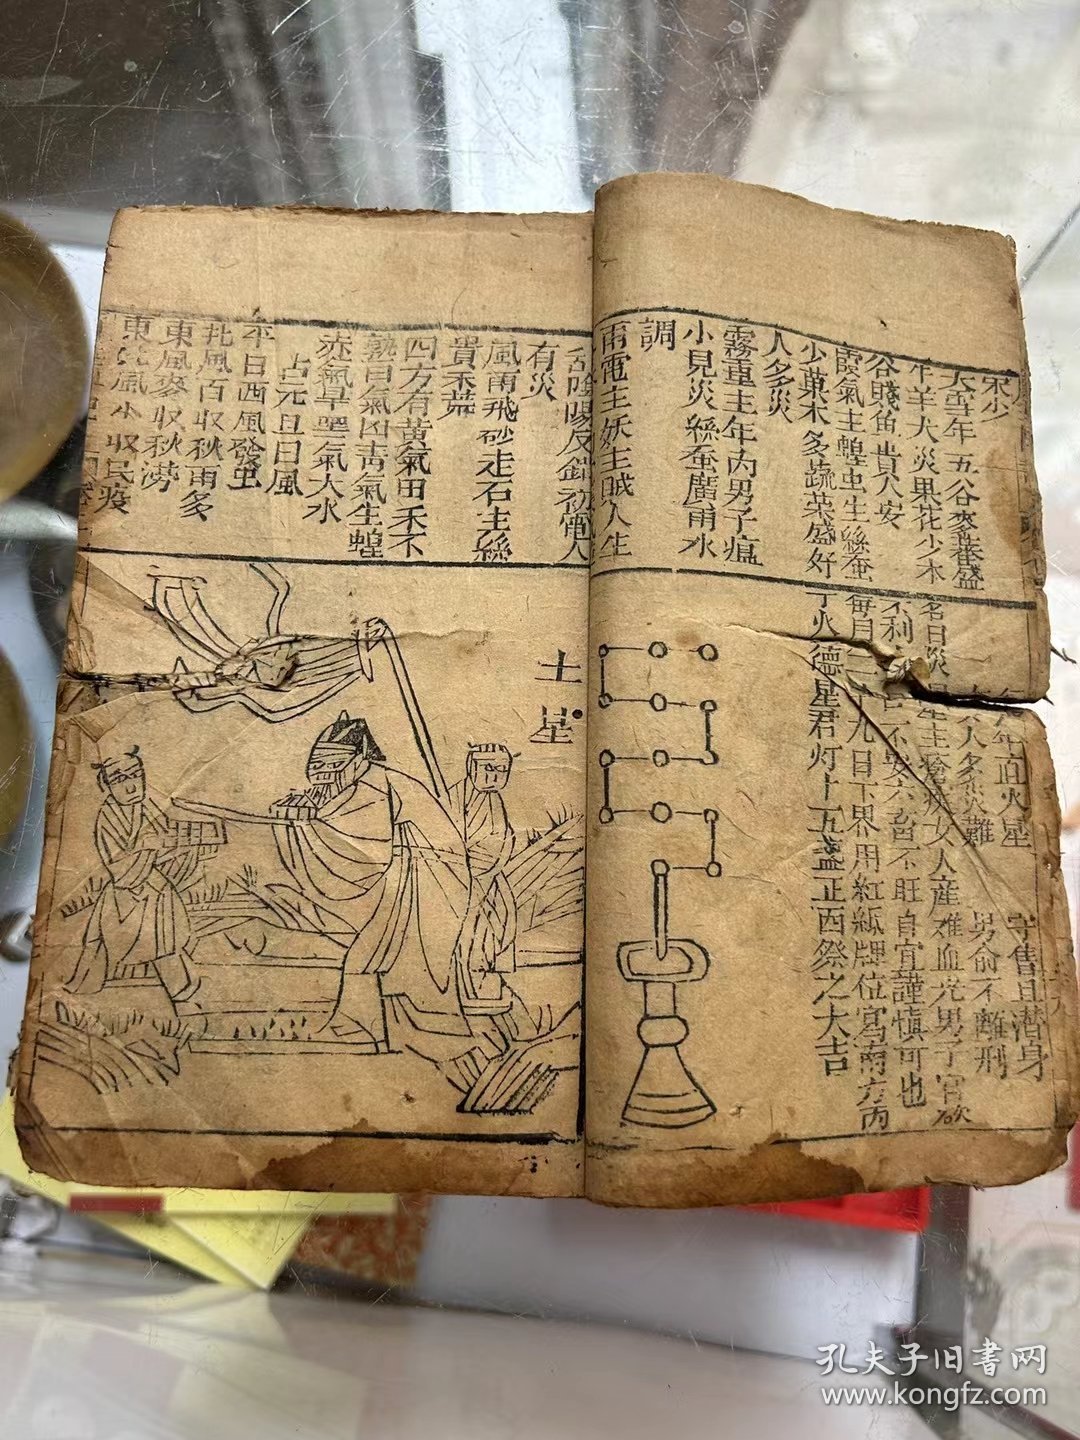 禾少
大雪年五谷麥蚕盛
牛羊犬災果花少木
谷賤魚貴人安
霞氣主蝗虫生絲蚕
少菓木多蔬菜盛好
人多災
霧重主年內男子瘟
小見災絲蚕廣雨水
調
雨電主妖主賊人生
年直火星
守售且潜身
人多災難
男命不離刑
名曰災星主瘡疾女人産难血光男子官欬
不利不安六畜不旺自宜謹慎可也
每月二十九日下界用紅紙牌位寫南方丙
丁火德星君灯十五盞正西祭之大吉
乱陰陽反錯初電人
有災
風雨飛砂走石主絲
貴禾荒
四方有黃氣田禾不
熟白氣凶青氣生蝗
赤氣旱黑氣大水
占元旦日風
平日西風發虫
北風百收秋雨多
東風麥收秋澇
東風小收民疫
土星
孔夫子旧書网
www.kongfz.com